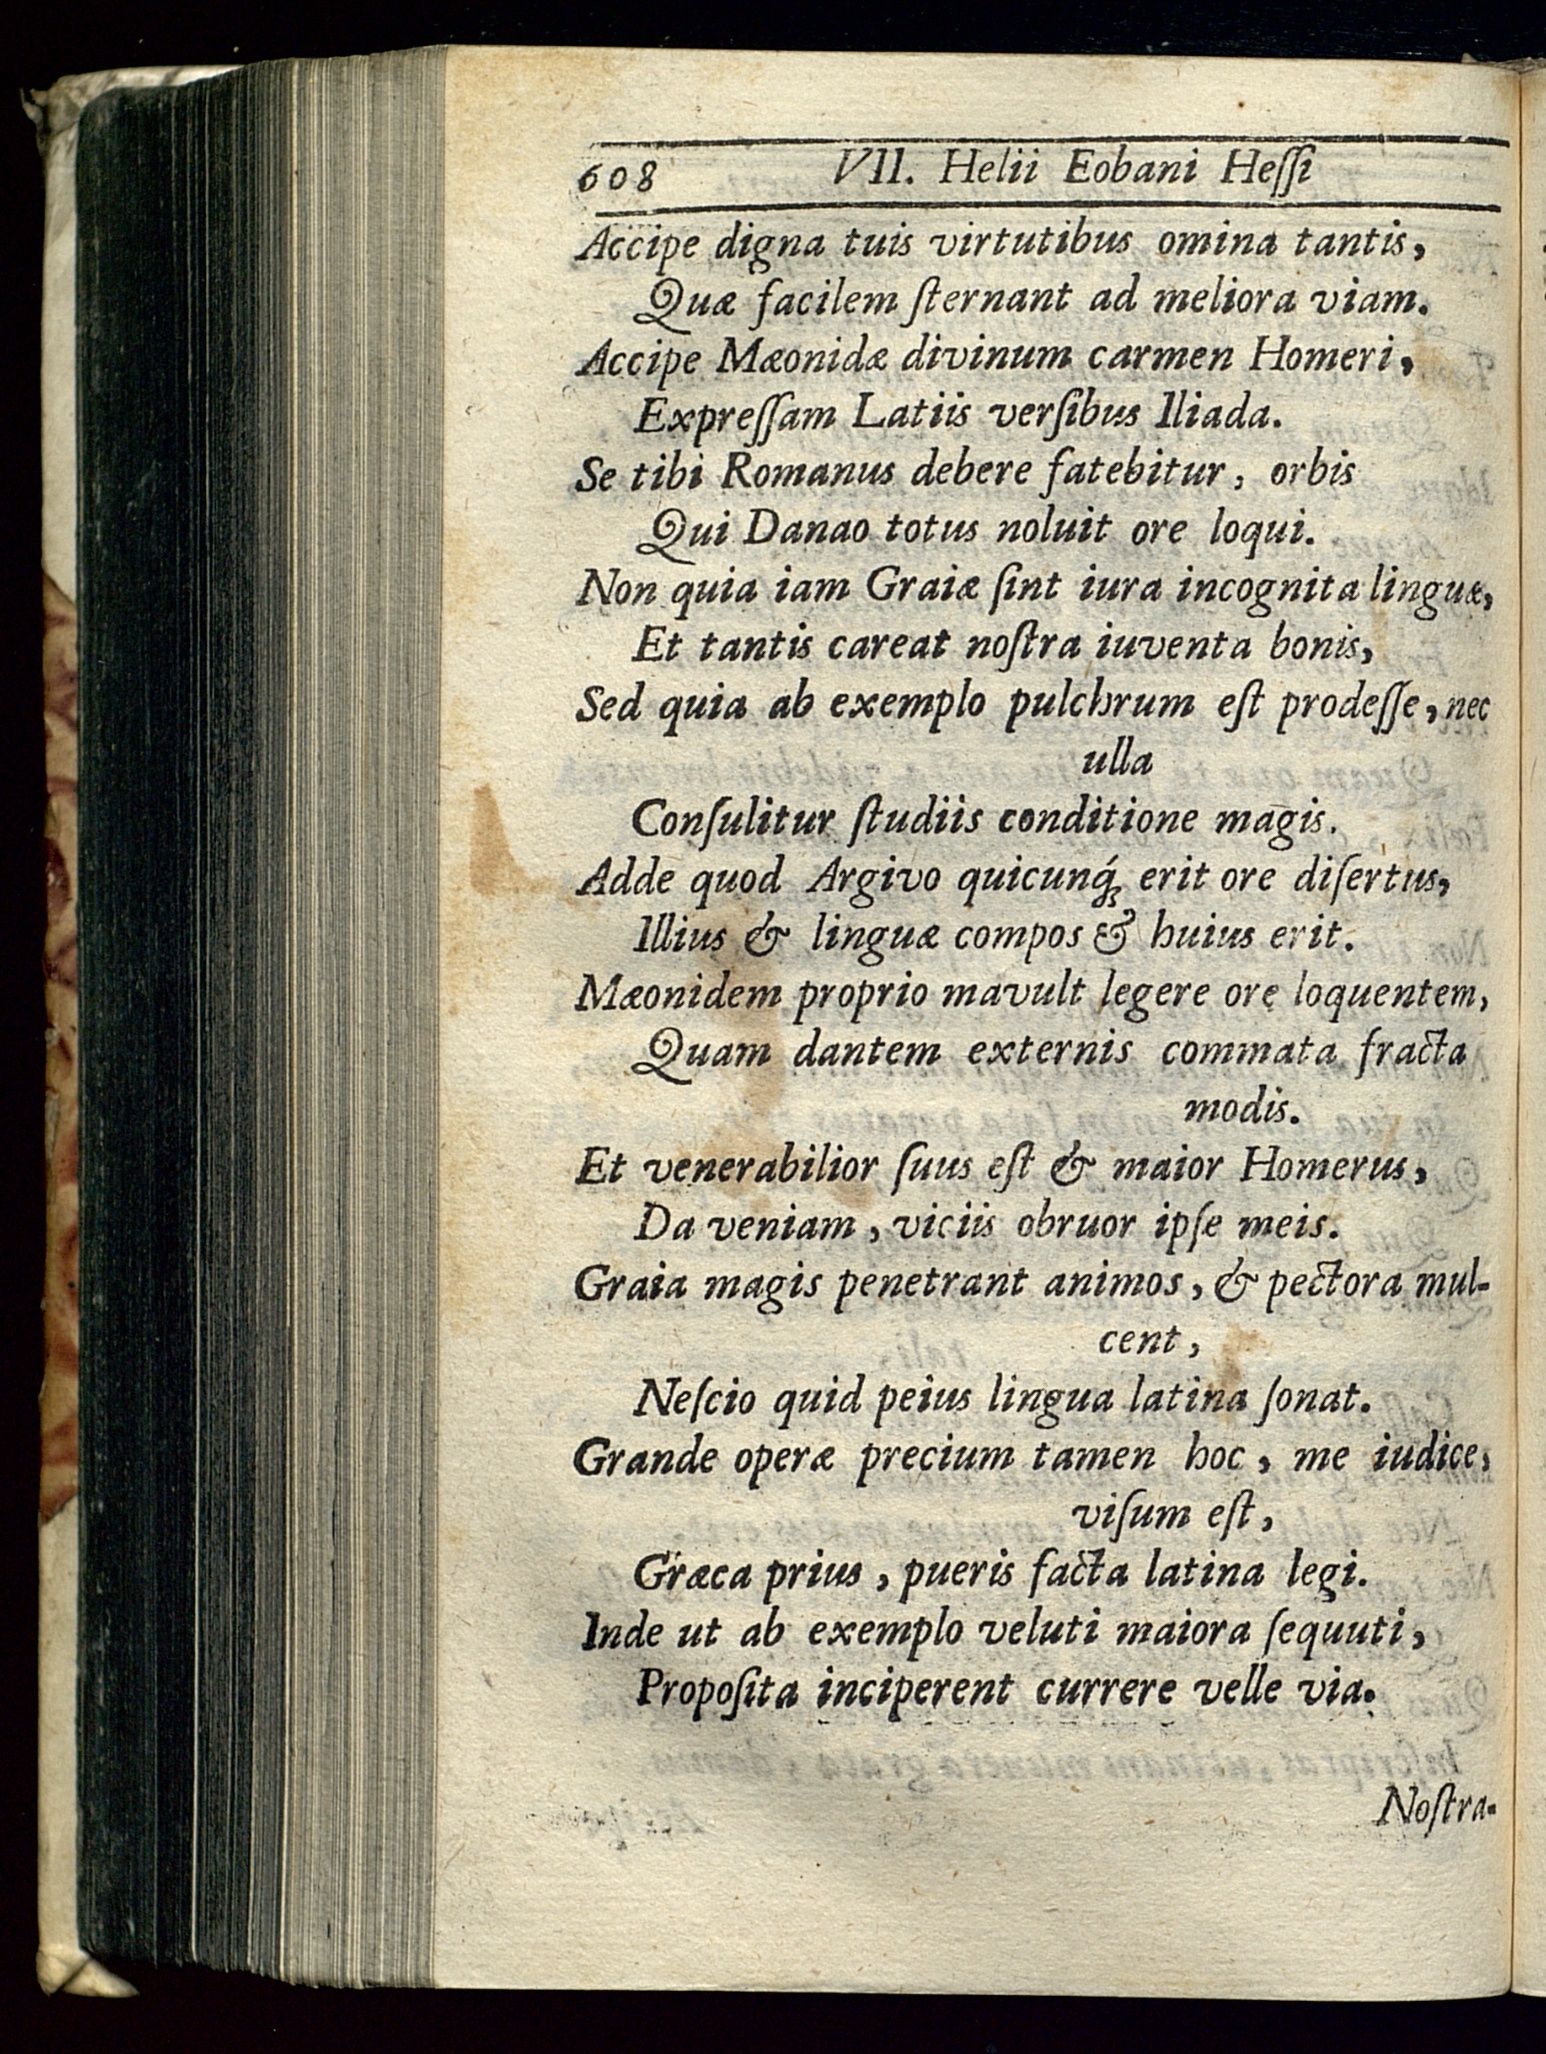 608 VII. Helii Eobani Heſſi
Accipe digna tuis virtutibus omina tantis,
Quæ facilem ſternant ad meliora viam.
Accipe Mæonidæ divinum carmen Homeri,
Expreſſam Latiis verſibus Iliada.
Se tibi Romanus debere fatebitur, orbis
Qui Danao totus noluit ore loqui.
Non quia iam Graiæ ſint iura incognita linguæ,
Et tantis careat noſtra iuventa bonis,
Sed quia ab exemplo pulchrum eſt prodeſſe, nec
ulla
Conſulitur ſtudiis conditione magis.
Adde quod Argivo quicunq́ꝫ erit ore diſertus,
Illius & linguæ compos & huius erit.
Mæonidem proprio mavult legere ore loquentem,
Quam dantem externis commata fracta
modis.
Et venerabilior ſuus eſt & maior Homerus,
Da veniam, viciis obruor ipſe meis.
Graia magis penetrant animos, & pectora mul-
cent,
Neſcio quid peius lingua latina ſonat.
Grande operæ precium tamen hoc, me iudice,
viſum eſt,
Græca prius, pueris facta latina legi.
Inde ut ab exemplo veluti maiora ſequuti,
Propoſita inciperent currere velle via.
Noſtra-